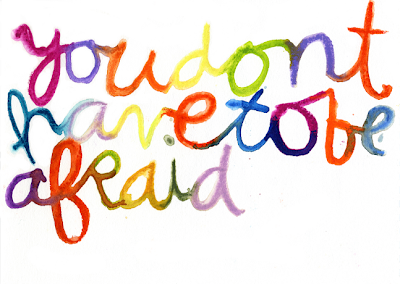 you dont
have to be
afraid